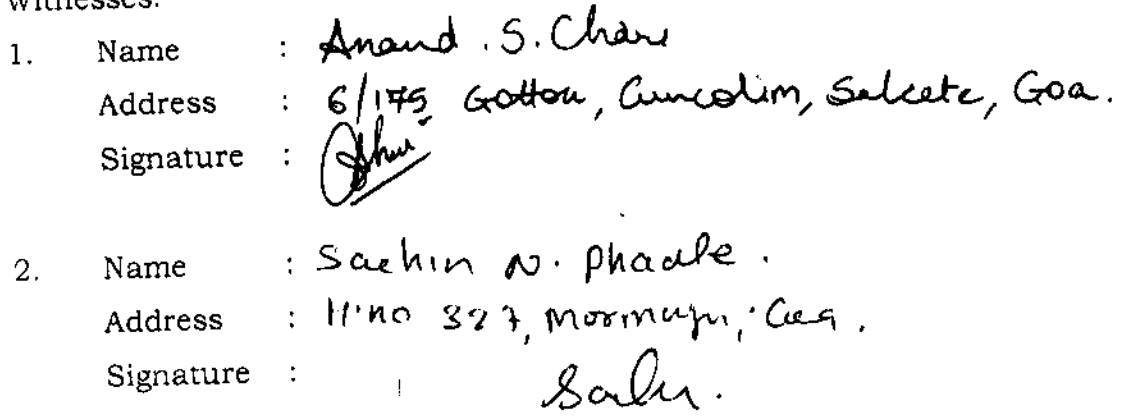 witnesses:
1. Name : Anand . S. Chari
Address : 6/175 Gotton, Cuncolim, Salcete, Goa.
Signature :
2. Name : Sachin N. Phadte .
Address : H.no 327, Mormugao, Goa .
Signature :